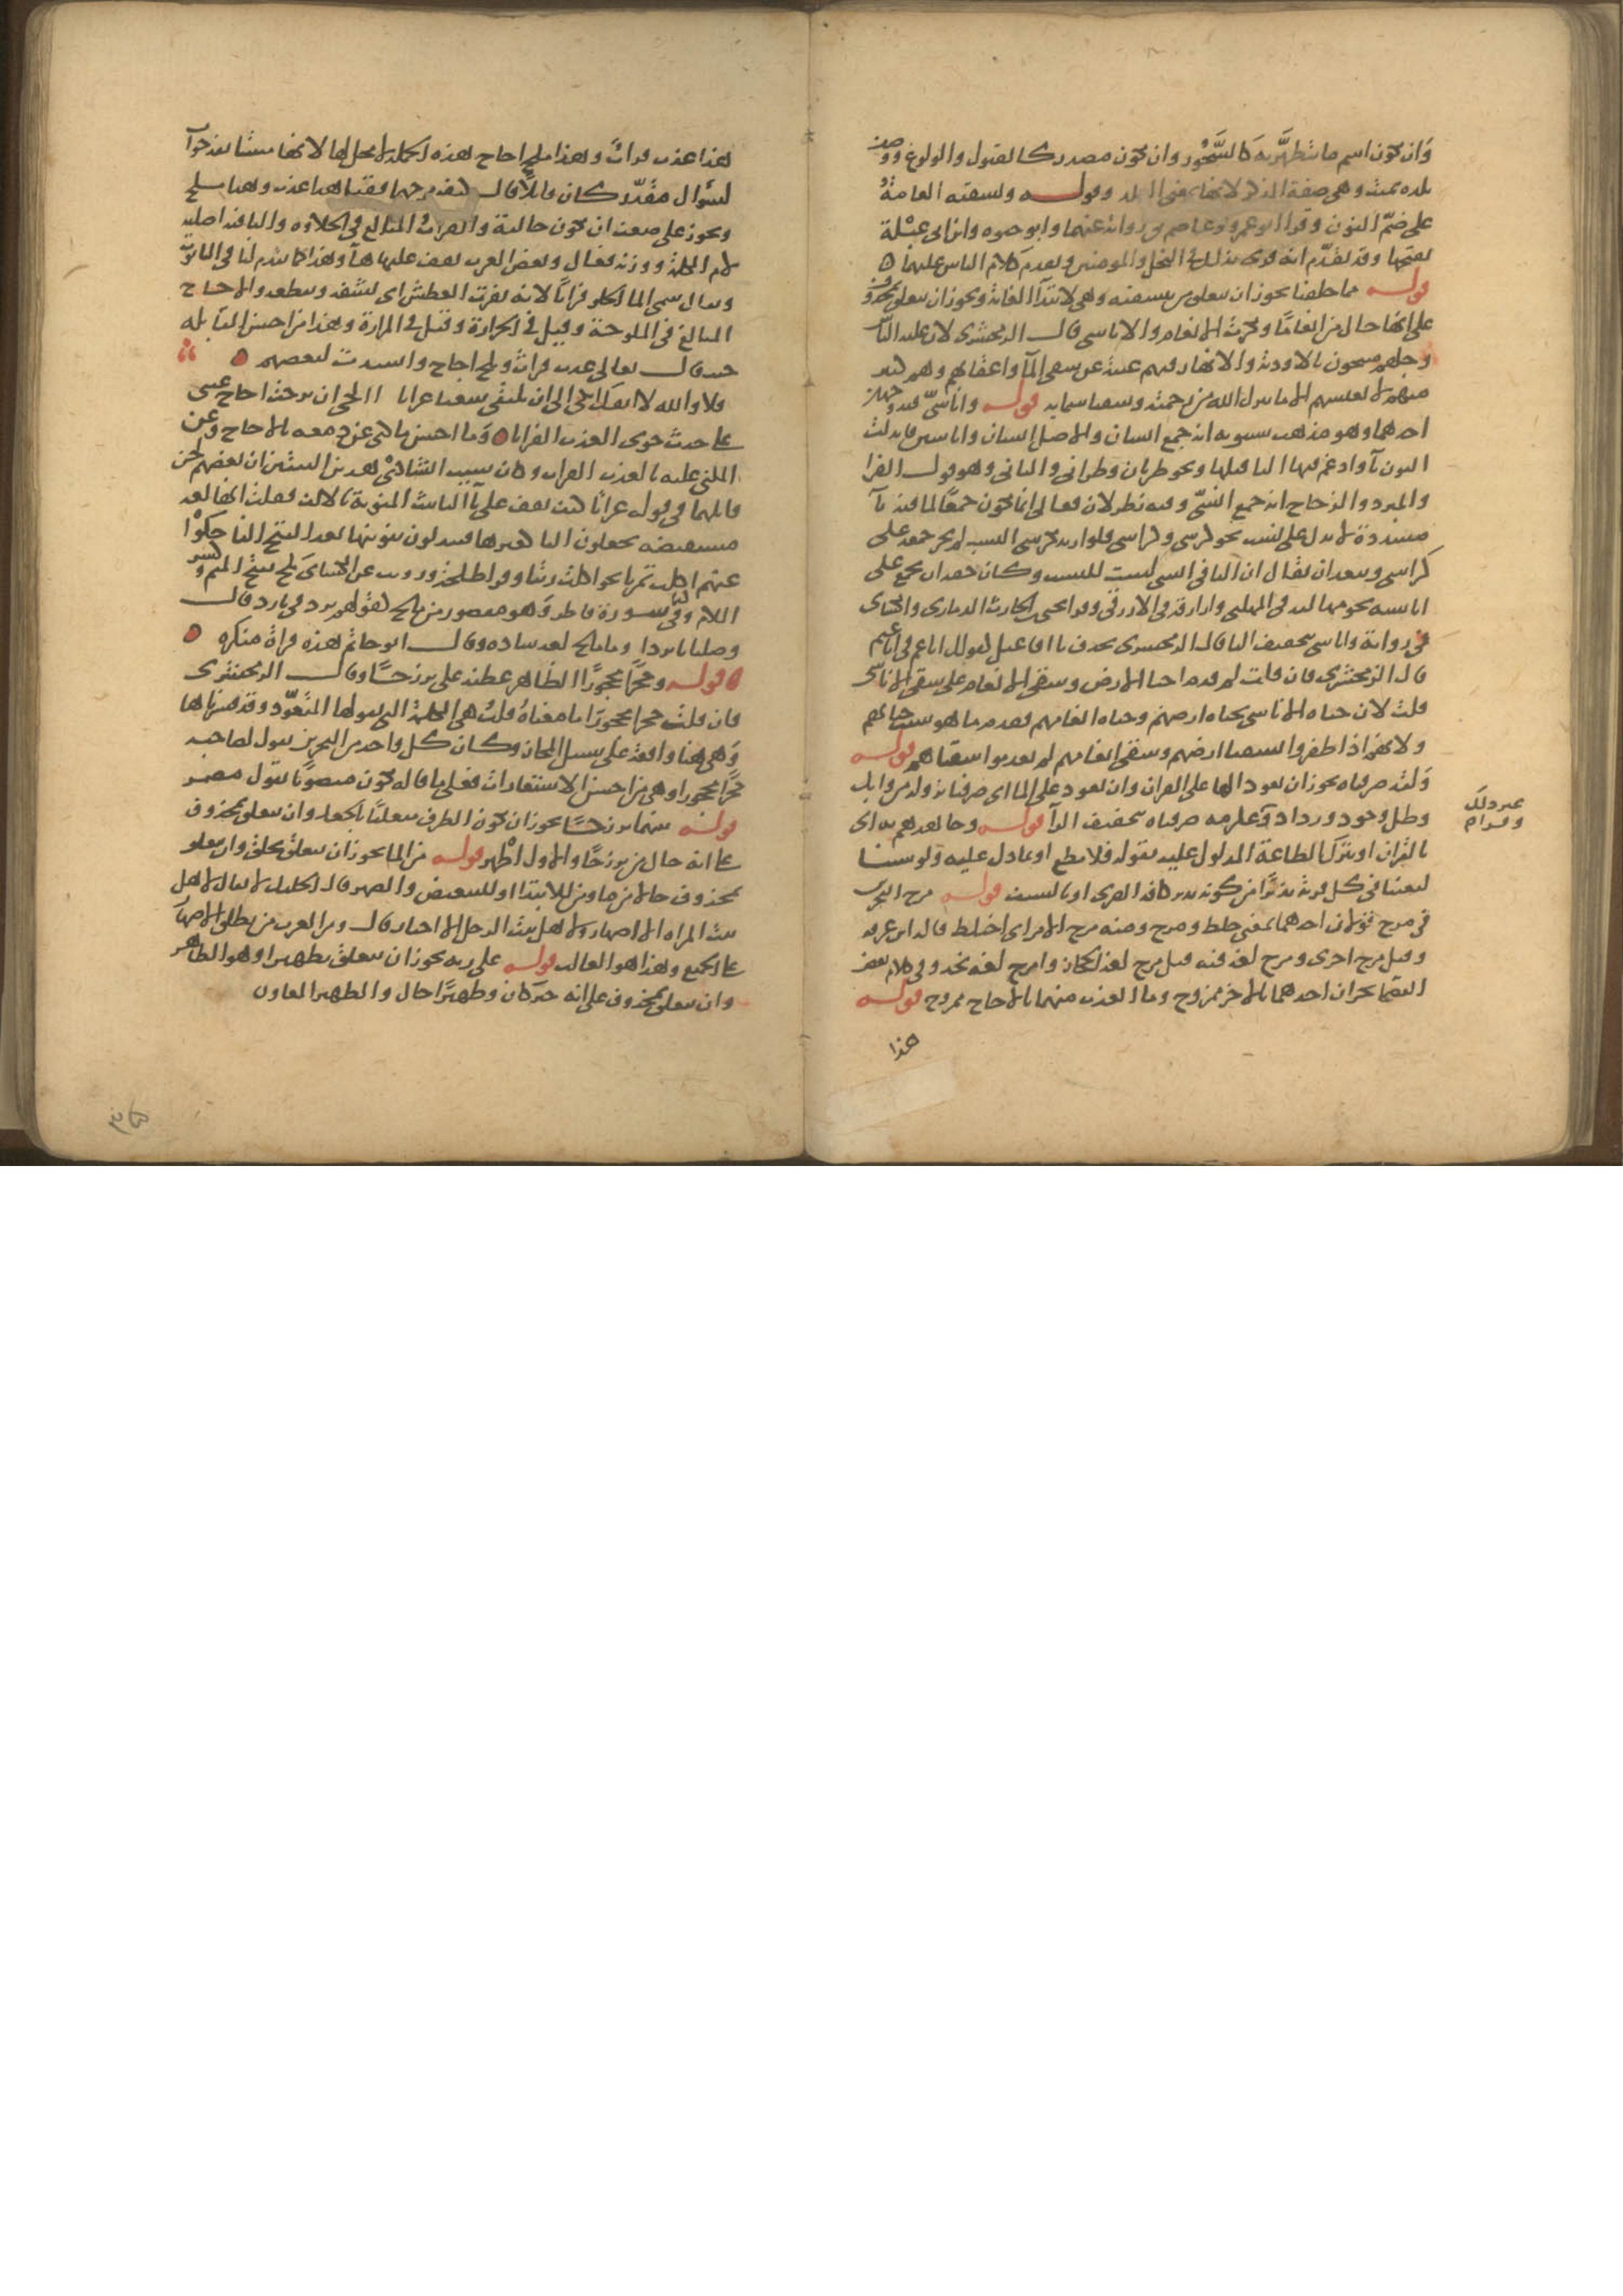 وان يكون اسم ما يتطهر به كالسحور وان يكون مصدرا كالقبول والولوع ووصف
بلدة بميت وهي صفة المذكر لانها بمعنى البلد وقوله ولنسقيه العامة
على ضم النون وقرا ابو عمرو وعاصم في رواية عنهما وابو حيوة وابن ابي عبلة
بفتحها وقد تقدم انه قرئ بذلك في النحل والمومنين وتقدم كلام الناس عليهما
قوله مما خلقنا يجوز ان يتعلق بنسقيه وهي لابتداء الغاية ويجوز ان يتعلق بمحذوف
على انها حال من انعاما ونكرت الانعام والاناسي قال الزمخشري لان علية الناس
وجلهم منيخون بالاودية والانهار فبهم غنية عن سقي الماء واعقابهم وهم كثير
منهم لا يعيشهم الا ما ينزل الله من رحمته وسقيا سمايه قوله واناسي فيه وجهان
احدهما وهو مذهب سيبويه انه جمع انسان والاصل انسان واناسين فابدلت
النون ياء وادغم فيها الياء قبلها ونحو ظربان وظرابي والثاني وهو قول الفرا
والمبرد والزجاج انه جمع انسي وفيه نظر لان فعالي انما يكون جمعا لما فيه ياء
مشددة لا تدل على نسب نحو كرسي وكراسي فلو اريد بكرسي النسب لم يجز جمعه على
كراسي ويبعد ان يقال ان الياء في انسي ليست للنسب وكان حقه ان يجمع على
اناسية نحو مهالبة في المهلبي وازارقة في الازرقي وقرا يحيى بن الحارث الذماري والكسائي
في رواية واناسي بتخفيف الياء قال الزمخشري بحذف ياء افاعيل كقولك اناعم في اناعيم
قال الزمخشري فان قلت لم قدم احيا الارض وسقي الانعام على سقي الاناسي
قلت لان حياة الاناسي بحياة ارضهم وحياة انعامهم فقدم ما هو سبب حياتهم
ولانهم اذا ظفروا بسقيا ارضهم وسقي انعامهم لم يعدموا سقياهم قوله
ولقد صرفناه يجوز ان يعود الها على القران وان يعود على الماء اي صرفنا نزوله من وابل
وطل وجود ورذاذ وغير ذلك وقرا عكرمة صرفناه بتخفيف الراء قوله وجاهدهم به اي
بالقران او بترك الطاعة المدلول عليه بقوله فلا تطع او بما دل عليه ولو شئنا
لبعثنا في كل قرية نذيرا من كونه نذير كافة القرى او بالسيف قوله مرج البحرين
في مرج قولان احدهما بمعنى خلط ومرج ومنه مرج الامر اي اختلط قاله ابن عرفة
وقيل مرج اجرى ومرج لغة فيه قيل مرج لغة الحجاز وامرج لغة نجد وفي كلام بعض
الفصحا بحران احدهما بالاخر ممزوج وما العذب منهما بالاجاج ممزوج قوله
هذا
هذا عذب فرات وهذا ملح اجاج هذه الجملة لا محل لها لانها مستانفة جوابا
لسؤال مقدر كان قايلا قال كيف مرجهما فقيل هذا عذب وهذا ملح
ويجوز على ضعف ان تكون حالية والفرات المبالغ في الحلاوة والتا فيه اصلية
لام الكلمة ووزنه فعال وبعض العرب يقف عليها هاء وهذا كما تقدم لنا في التابوت
ويقال سمي الماء الحلو فراتا لانه يفرت العطش اي يشقه ويقطعه والاجاج
المبالغ في الملوحة وقيل في الحرارة وقيل في المرارة وهذا من احسن المقابلة
حيث قال تعالى عذب فرات وملح اجاج وانشدت لبعضهم
فلا والله لا انفك ابكي الى ان نلتقي شعثا عراتا االحى ان نزحت اجاج عيني
على جدث حوى العذب الفراتا وما احسن ما كنى عن دمعه بالاجاج وعن
المبكي عليه بالعذب الفرات وكان سبب انشادي هذين البيتين ان بعضهم لحن
قايلهما في قوله عراتا كيف يقف على تاء التانيث المنونة بالالف فقلت انها لغة
مستفيضة يجعلون التا كغيرها فيبدلون تنوينها بعد الفتح الفا حكوا
عنهم اكلت تمرتا نحو اكلت زيتا وقرا طلحة وروي عن الكسائي ملح بفتح الميم وكسر
اللام وكذا في سورة فاطر وهو مقصور من مالح كقولهم برد في بارد قال
وصليانا بردا وماء مالح لغة شاذة وقال ابو حاتم هذه قراة منكرة
قوله وحجرا محجورا الظاهر عطفه على برزخا وقال الزمخشري
فان قلت حجرا محجورا ما معناه قلت هي الكلمة التي يقولها المتعوذ وقد فسرناها
وهي هنا واقعة على سبيل المجاز وكان كل واحد من البحرين يقول لصاحبه
حجرا محجورا وهي من احسن الاستعارات فعلى ما قاله يكون منصوبا بقول مضمر
قوله بينهما برزخا يجوز ان يكون الظرف متعلقا بالجعل وان يتعلق بمحذوف
على انه حال من برزخا والاول اظهر قوله من الماء يجوز ان يتعلق بخلق وان يتعلق
بمحذوف حالا من ماء ومن للابتدا او للتبعيض والصهر قال الخليل لا يقال لاهل
بيت المراة الا الاصهار ولا لاهل بيت الرجل الا احما قال ومن العرب من يطلق الاصهار
على الجميع وهذا هو الغالب قوله على ربه يجوز ان يتعلق بظهيرا وهو الظاهر
وان يتعلق بمحذوف على انه خبر كان وظهيرا حال والظهير المعاون